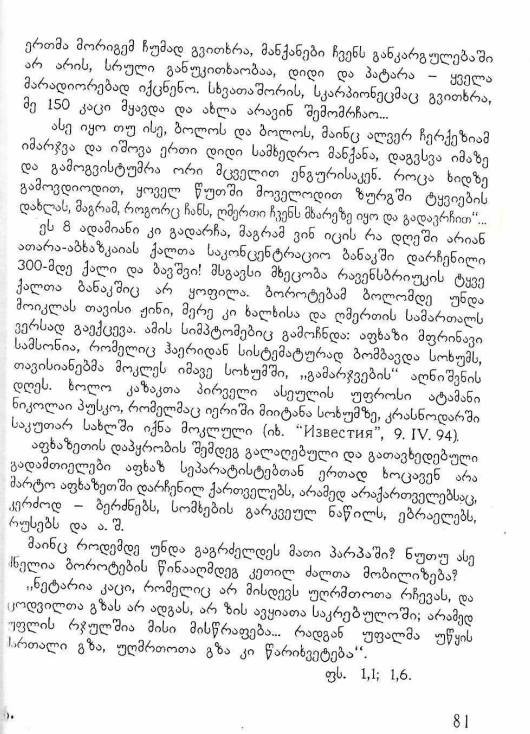 ერთმა მორიგემ ჩუმად გვითხრა, მანქანები ჩვენს განკარგულებაში
არ არის, სრული განუკითხაობაა, დიდი და პატარა – ყველა
მარადიორებად იქცნენო. სხვათაშორის, სკარპიონეცმაც გვითხრა,
მე 150 კაცი მყავდა და ახლა არავინ შემომრჩაო...
ასე იყო თუ ისე, ბოლოს და ბოლოს, მაინც ალვერ ჩერქეზიამ
იმარჯვა და იშოვა ერთი დიდი სამხედრო მანქანა, დაგვსვა იმაზე
და გამოგვისტუმრა ორი მცველით ენგურისაკენ. როცა ხიდზე
გამოვდიოდით, ყოველ წუთში მოველოდით ზურგში ტყვიების
დახლას, მაგრამ, როგორც ჩანს, ღმერთი ჩვენს მხარეზე იყო და გადავრჩით“...
ეს 8 ადამიანი კი გადარჩა, მაგრამ ვინ იცის რა დღეში არიან
ათარა-აბხაზკაიას ქალთა საკონცენტრაციო ბანაკში დარჩენილი
300-მდე ქალი და ბავშვი! მსგავსი მხეცობა რავენსბრიუკის ტყვე
ქალთა ბანაკშიც არ ყოფილა. ბოროტებამ ბოლომდე უნდა
მოიკლას თავისი ჟინი, მერე კი ხალხისა და ღმერთის სამართალს
ვერსად გაექცევა. ამის სიმპტომებიც გამოჩნდა: აფხაზი მფრინავი
სამსონია, რომელიც ჰაერიდან სისტემატურად ბომბავდა სოხუმს,
თავისიანებმა მოკლეს იმავე სოხუმში, „გამარჯვების“ აღნიშვნის
დღეს. ხოლო კაზაკთა პირველი ასეულის უფროსი ატამანი
ნიკოლაი პუსკო, რომელმაც იერიში მიიტანა სოხუმზე, კრასნოდარში
საკუთარ სახლში იქნა მოკლული (იხ. “Известия”, 9. IV. 94).
აფხაზეთის დაპყრობის შემდეგ გალაღებული და გათავხედებული
გადამთიელები აფხაზ სეპარატისტებთან ერთად ხოცავენ არა
მარტო აფხაზეთში დარჩენილ ქართველებს, არამედ არაქართველებსაც,
კერძოდ – ბერძნებს, სომხების გარკვეულ ნაწილს, ებრაელებს,
რუსებს და ა. შ.
მაინც როდემდე უნდა გაგრძელდეს მათი პარპაში? ნუთუ ასე
ძნელია ბოროტების წინააღმდეგ კეთილ ძალთა მობილიზება?
„ნეტარია კაცი, რომელიც არ მისდევს უღრმთოთა რჩევას, და
ცოდვილთა გზას არ ადგას, არ ზის ავყიათა საკრებულოში; არამედ
უფლის რჯულშია მისი მისწრაფება... რადგან უფალმა უწყის
მართალი გზა, უღმრთოთა გზა კი წარიხვეტება“.
ფს. 1,1; 1,6.
81